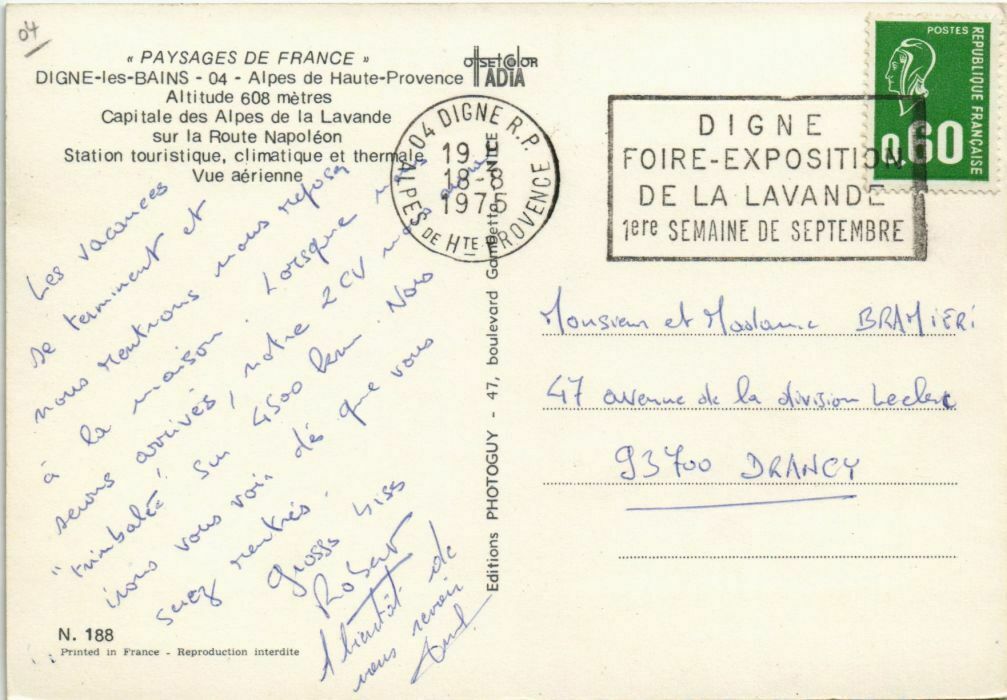 04
« PAYSAGES DE FRANCE »
DIGNE-les-BAINS - 04 - Alpes de Haute-Provence
Altitude 608 mètres
Capitale des Alpes de la Lavande
sur la Route Napoléon
Station touristique, climatique et thermale
Vue aérienne
offset color
ADIA
04 DIGNE R.P.
19 H
18-8
1975
ALPES DE HTE PROVENCE
DIGNE
FOIRE-EXPOSITION
DE LA LAVANDE
1ere SEMAINE DE SEPTEMBRE
POSTES
REPUBLIQUE FRANÇAISE
0.60
Les vacances
se terminent et
nous rentrons nous reposer
à la maison. Lorsque nous
serons arrivés, notre 2CV nous aura
"trimbalés" sur 4500 km. Nous
irons vous voir dès que vous
serez rentrés.
Grosses bises
Robert
A bientôt de
vous revoir
Monsieur et Madame BRAMIERI
47 avenue de la division Leclerc
93700 DRANCY
Editions PHOTOGUY - 47, boulevard Gambetta - NICE
N. 188
Printed in France - Reproduction interdite